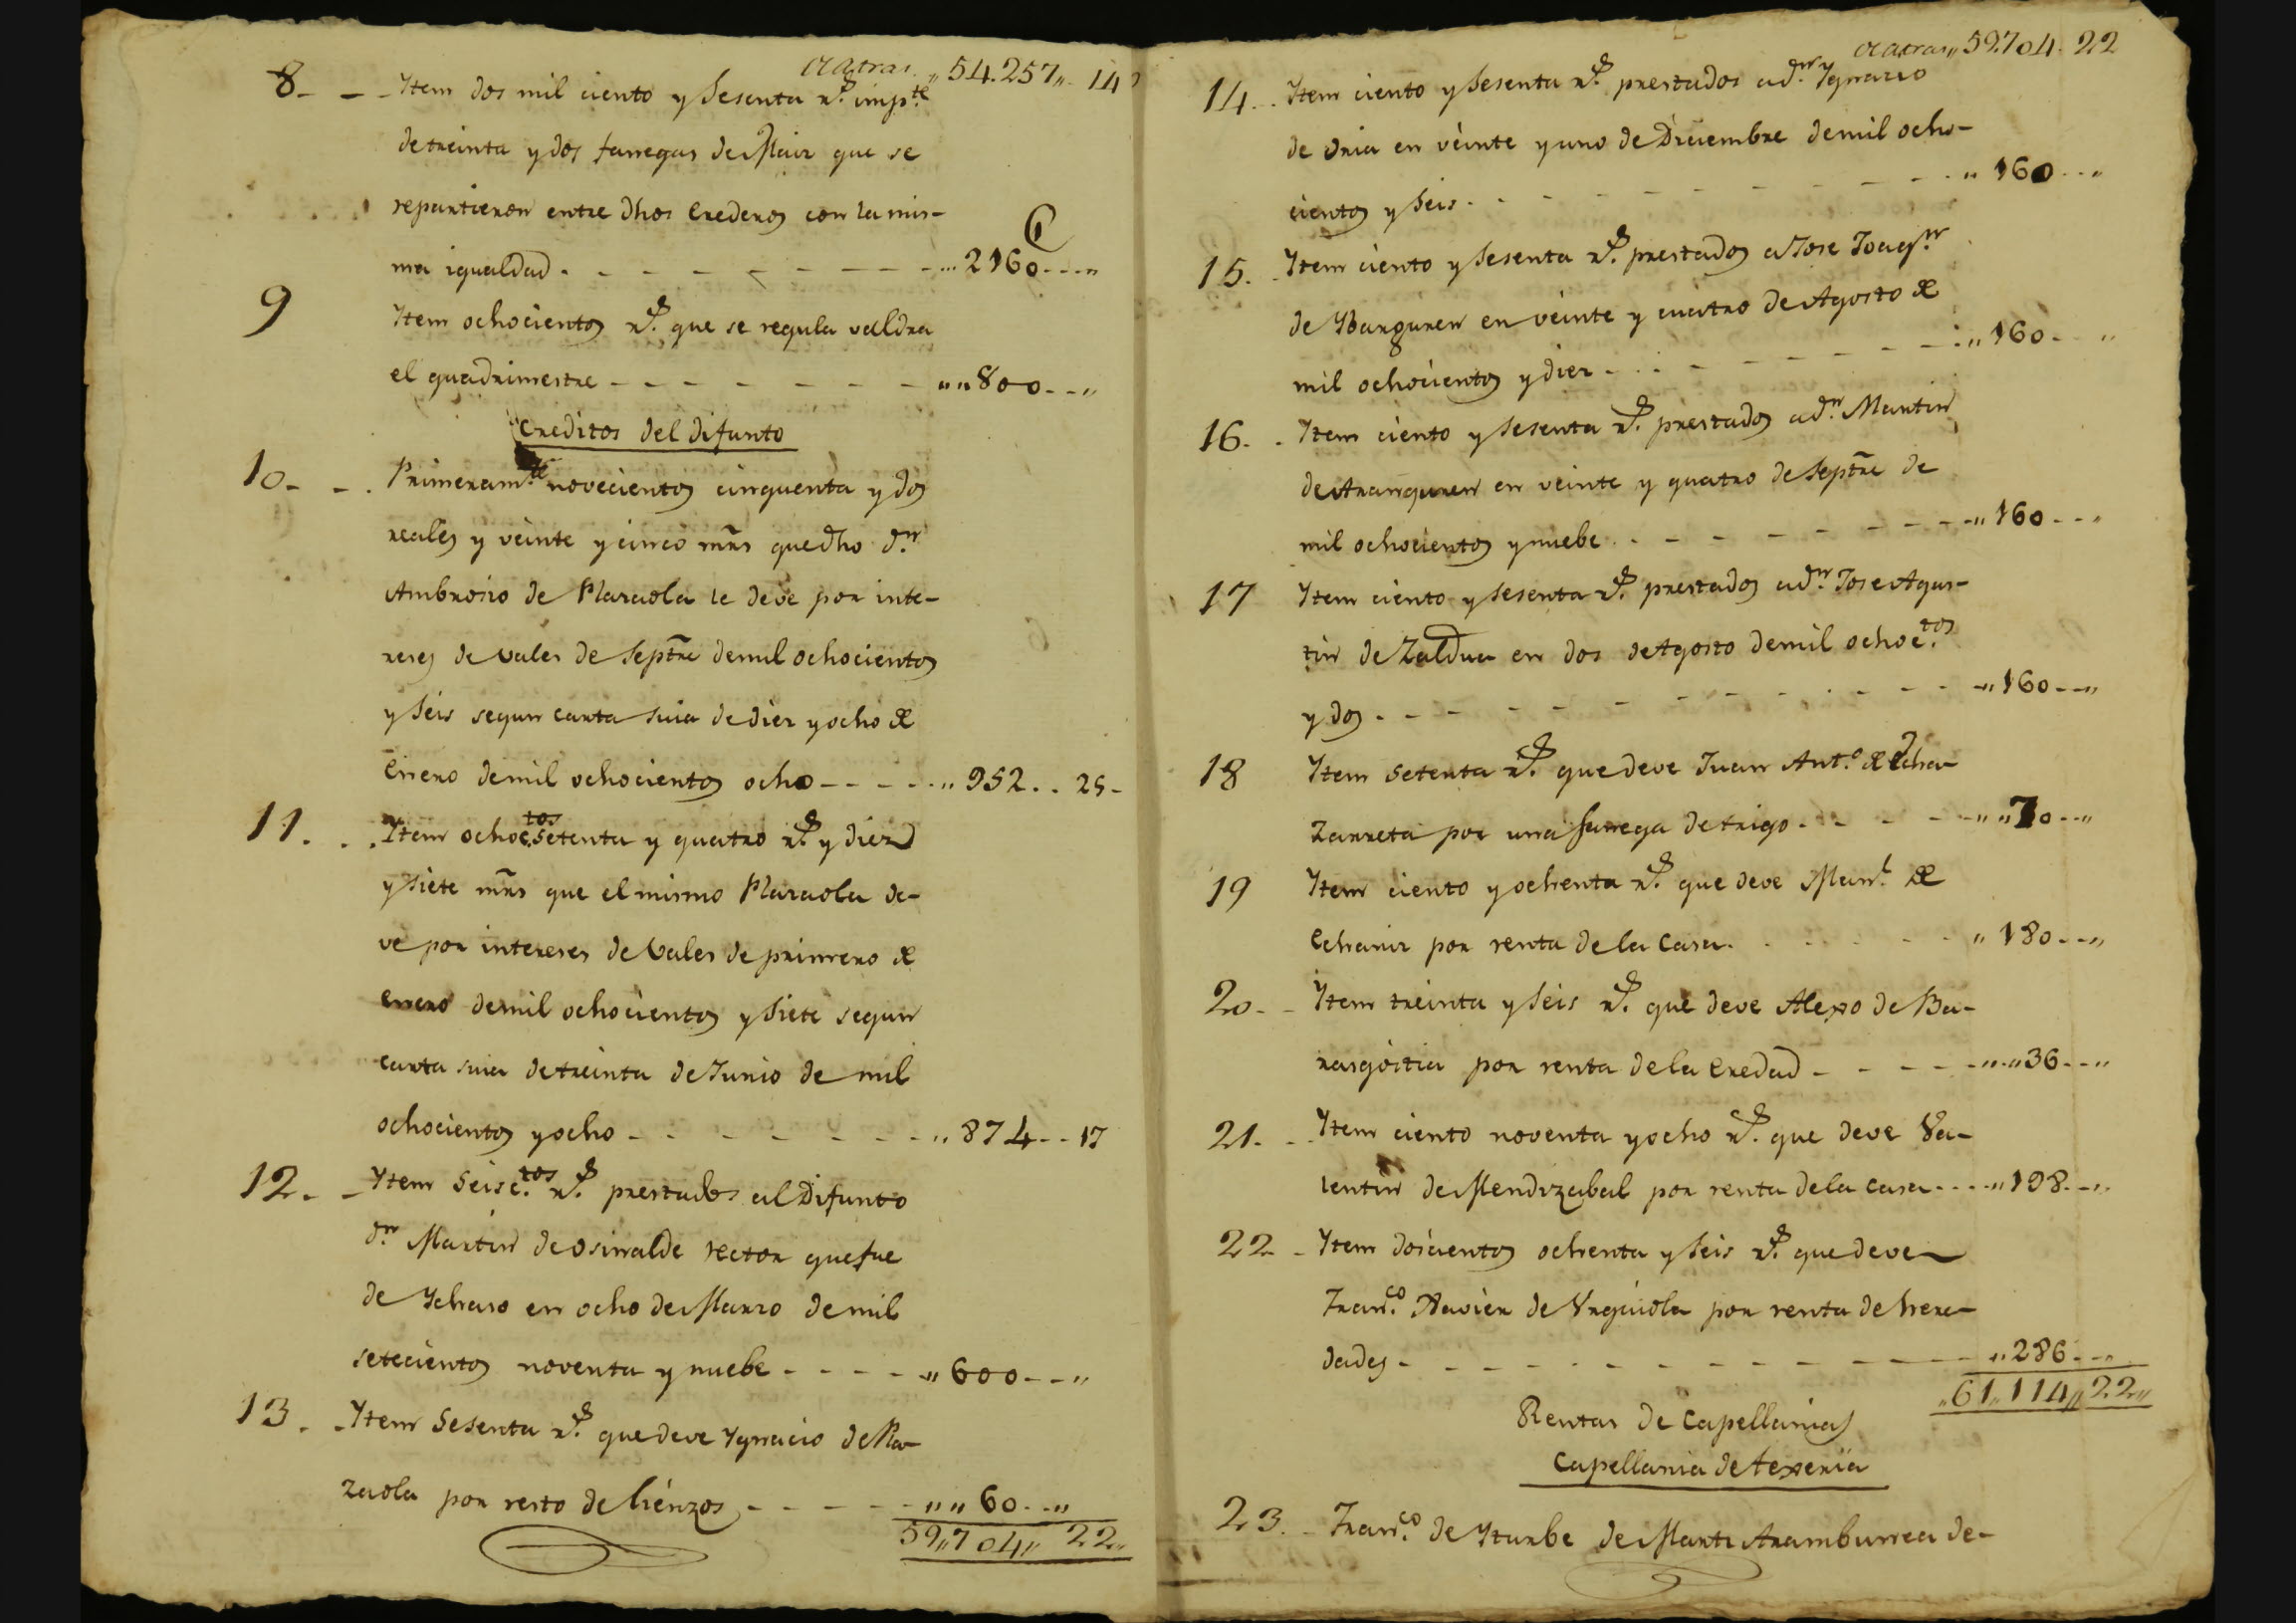 Atras. „54.257„. 14
8- - - Item dos mil ciento y sesenta r.s imp.te
de treinta y dos fanegas de Maiz que se
repartieron entre dhos Erederos con la mis-
ma igualdad. - - - - - - - ...2160---„
9 Item ochocientos r.s que se regula valdra
el quadrimestre - - - - - - „„800---„
Creditos del difunto
10- - . Primeram.te novecientos cinquenta y dos
reales y veinte y cinco mrs que dho d.n
Ambrosio de Plazaola le deve por inte-
reses de vales de Septre de mil ochocientos
y seis segun carta suia de diez y ocho de
Enero de mil ochocientos ocho - - - - „952.. 25-
11. . . Item ochoc.tos setenta y quatro r.s y diez
y siete mrs que el mismo Plazaola de-
ve por intereses de Vales de primero de
enero de mil ochocientos y siete segun
carta suia de treinta de Junio de mil
ochocientos y ocho - - - - - - „874-- 17
12. - Item Seisc.tos r.s prestados al Difunto
d.n Martin de Osinalde rector que fue
de Ychaso en ocho de Marzo de mil
setecientos noventa y nuebe - - - - „600---„
13. - Item Sesenta r.s que deve Ygnacio de Pla-
zaola por resto de lienzos - - - - „„60---„
59„704„ 22„
Atras„ 59704. 22
14. . Item ciento y sesenta r.s prestados a d.n Ygnacio
de Oria en veinte y uno de Diciembre de mil ocho-
cientos y seis. - - - - - - - „160---„
15. - Item ciento y sesenta r.s prestados a Jose Joaq.n
de Ybarguren en veinte y cuatro de Agosto de
mil ochocientos y diez - - - - - - „160- - „
16. . Item ciento y sesenta r.s prestados a d.n Martin
de Aranguren en veinte y quatro de Septre de
mil ochocientos y nuebe - - - - - - „160---„
17 Item ciento y sesenta r.s prestados a d.n Jose Agus-
tin de Zaldua en dos de Agosto de mil ochoc.tos
y dos - - - - - - - - - „160---„
18 Item setenta r.s que deve Juan Ant.o de Echa-
zarreta por una fanega de trigo - - - - „„70---„
19 Item ciento y ochenta r.s que deve Man.l de
Echaniz por renta de la Casa. - - - - „180---„
20. - Item treinta y seis r.s que deve Alexo de Ba-
rasgoitia por renta de la Eredad - - - - „„36---„
21. - Item ciento noventa y ocho r.s que deve Va-
lentin de Mendizabal por renta de la casa - - - „198.-„
22 - Item doscientos ochenta y seis r.s que deve
Fran.co Xavier de Urquiola por renta de here-
dades - - - - - - - - - - „286---„
„61„114„22„
Rentas de Capellanias
Capellania de Texeria
23. - Fran.co de Yturbe de Marti Aramburrea de-